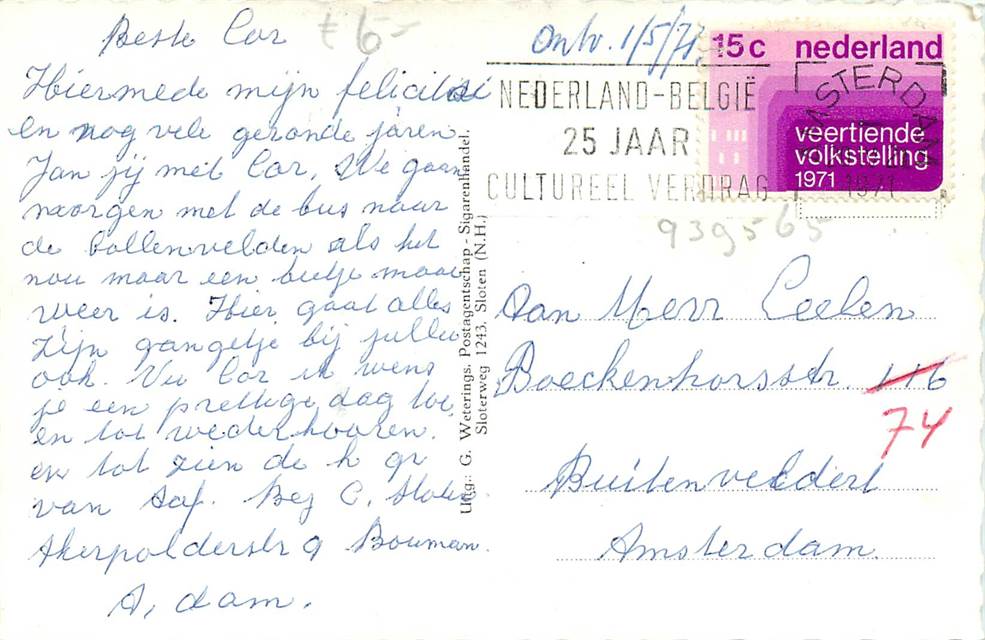 Beste Cor
€ 6-
Ontv. 1/5/71
Hiermede mijn felicitatie
en nog vele gezonde jaren
Jan jij met Cor. We gaan
morgen met de bus naar
de bollenvelden als het
nou maar een beetje mooi
weer is. Hier gaat alles
zijn gangetje bij jullie
ook. Nu Cor ik wens
je een prettige dag toe,
en tot wederhooren.
en tot zien de h gr
van Saf. Bej C.
Akerpolderstr 9 Bouman.
A, dam.
Uitg.: G. Weterings. Postagentschap - Sigarenhandel.
Sloterweg 1243. Sloten (N.H.)
NEDERLAND-BELGIË
25 JAAR
CULTUREEL VERDRAG
AMSTERDAM
1971
15c nederland
veertiende
volkstelling
1971
939565
Aan Herr Ceelen
Boeckenhorsstr. 116
74
Buitenveldert
Amsterdam